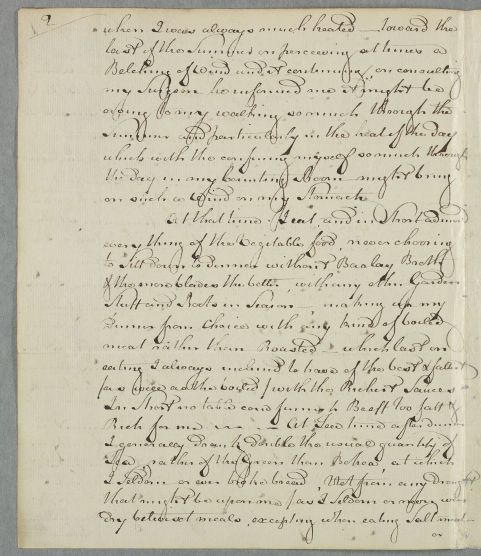 2
when I was always much heated – toward the
last of the Summer on perceiving at times a
Belching of Wind and it continuing, on consulting
my Surgeon he informed me it might be
owing to my walking so much through the
Summer and particularly in the heat of the day
which with the confining myself so much through
the day in my Counting Room – might bring
on such a Wind on my Stomach
At that time I eat and in Short admired
every thing of the Vegetable food, never choosing
to Sitt down to dinner without Barley Broth
& the more blades the better, with any other Garden
Stuff and Roots in Season – making up my
Dinner from Choice with any kind of boiled
meat rather than Roasted – which last on
eating I always inclined to have of the best & fattest
(as were also the boiled) with the Richest Sauces
In Short no table could furnish Beeff too fatt or
Rich for me – – At Tea time after dinner
I generally drank double the usual quantity of
Tea, rather of the Green than Bohea, at which
I Seldom or ever eat bread, Nott from any drought
that might be upon me (as I Seldom or never was
dry betwixt meals, excepting when eating Salt meat –
or